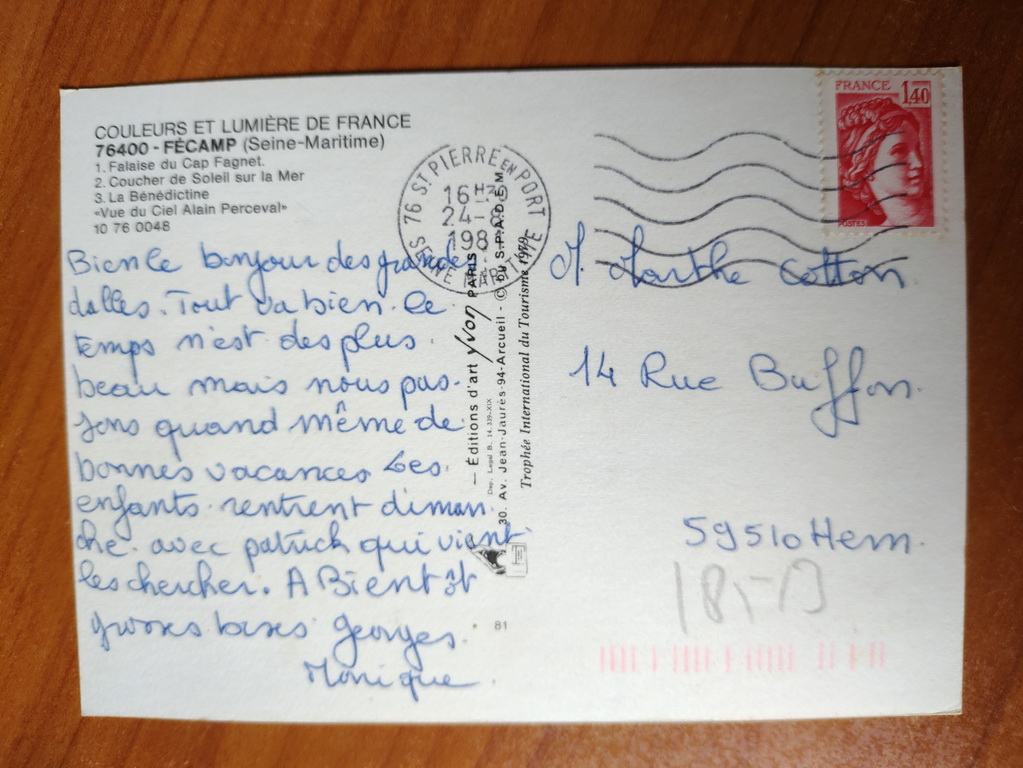 COULEURS ET LUMIÈRE DE FRANCE
76400 - FÉCAMP (Seine-Maritime)
1. Falaise du Cap Fagnet.
2. Coucher de Soleil sur la Mer
3. La Bénédictine
«Vue du Ciel Alain Perceval»
10 76 0048
Bien le bonjour des grandes
dalles. Tout va bien. le
temps n'est des plus
beau mais nous pas-
sons quand même de
bonnes vacances Les
enfants rentrent diman
che avec patrick qui vient
les chercher. A Bientôt
grosses bises Georges
Monique
81
— Éditions d'art yvon PARIS
Dep. Legal B. 14.339-XIX
30. Av. Jean-Jaurès-94-Arcueil - © by S.P.A.D.E.M.
Trophée International du Tourisme 1979
76 ST PIERRE EN PORT
16H
24-8
198
SEINE MARITIME
FRANCE 1,40
POSTES
M. Marthe Cotton
14 Rue Buffon.
59510 Hem.